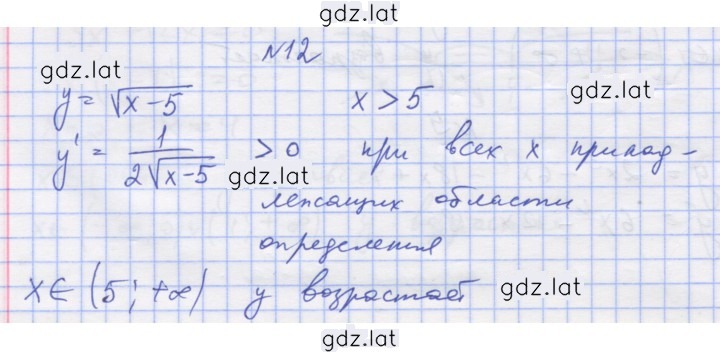 gdz.lat
№12
gdz.lat
gdz.lat
y = √x-5    x > 5
y' = 1/2√x-5 > 0 при всех x принад-
gdz.lat
лежащих области
определения
x ∈ (5; +∞) y возрастает
gdz.lat
gdz.lat